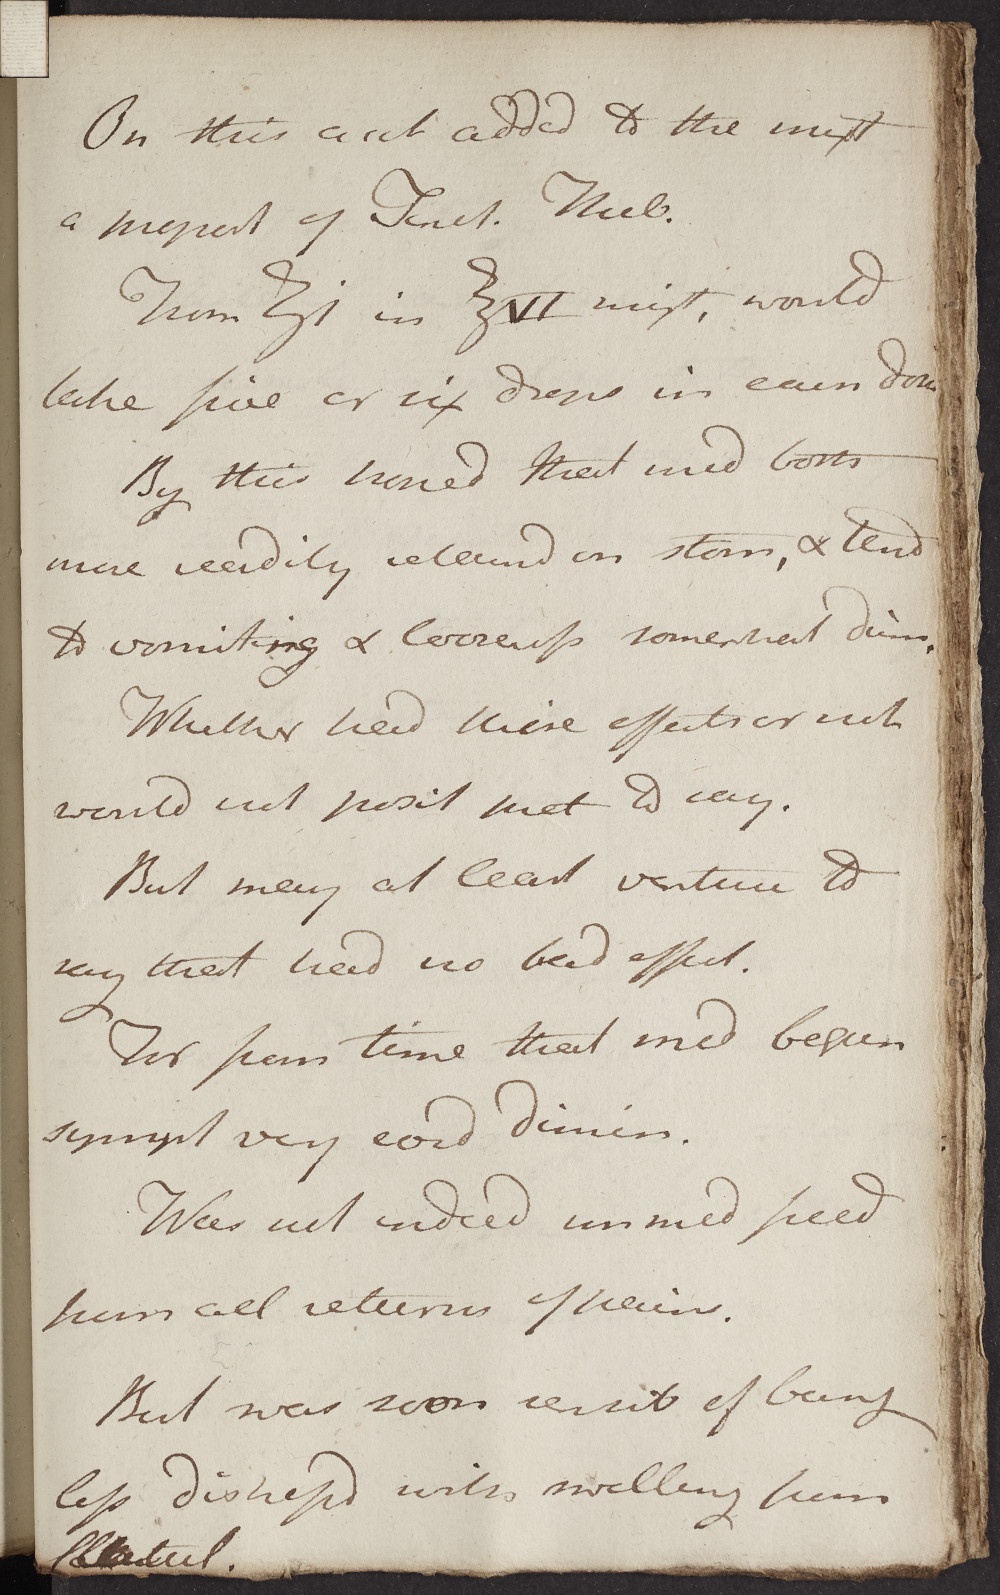 On this acct added to the mixt
a proport of Tinct. Theb.
From ʒi in ℥VI mixt, would
take five or six drops in each dose
By this hoped that med both
more readily retaind on stom, & tend
to vomiting & looseness somewhat dimin.
Whether had these effects or not
would not posit pret to say.
But may at least venture to
say that had no bad effect.
For from time that med begun
sympt very cond dimin.
Was not indeed immed freed
from all returns of pain.
But was soon sensib of being
less distressd with swelling from
flatul.